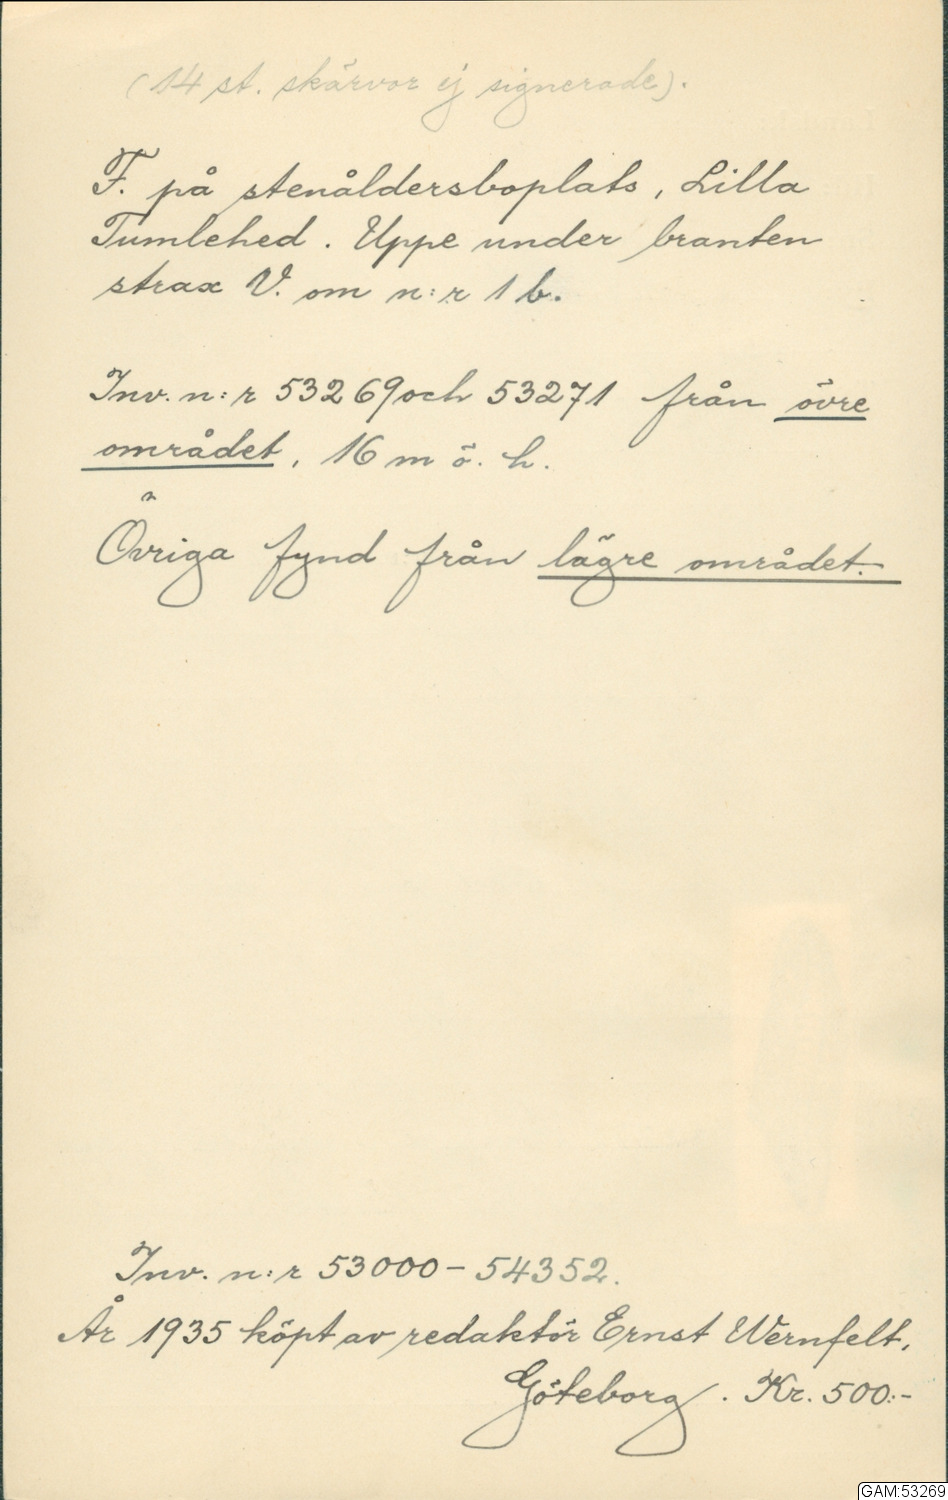 (14 st. skärvor ej signerade).
F. på stenåldersboplats, Lilla
Tumlehed. Uppe under branten
strax V. om n:r 1 b.
Inv. n:r 53269 och 53271 från övre
området, 16 m ö. h.
Övriga fynd från lägre området.
Inv. n:r 53000-54352.
År 1935 köpt av redaktör Ernst Wernfelt,
Göteborg. Kr. 500:-
GAM:53269